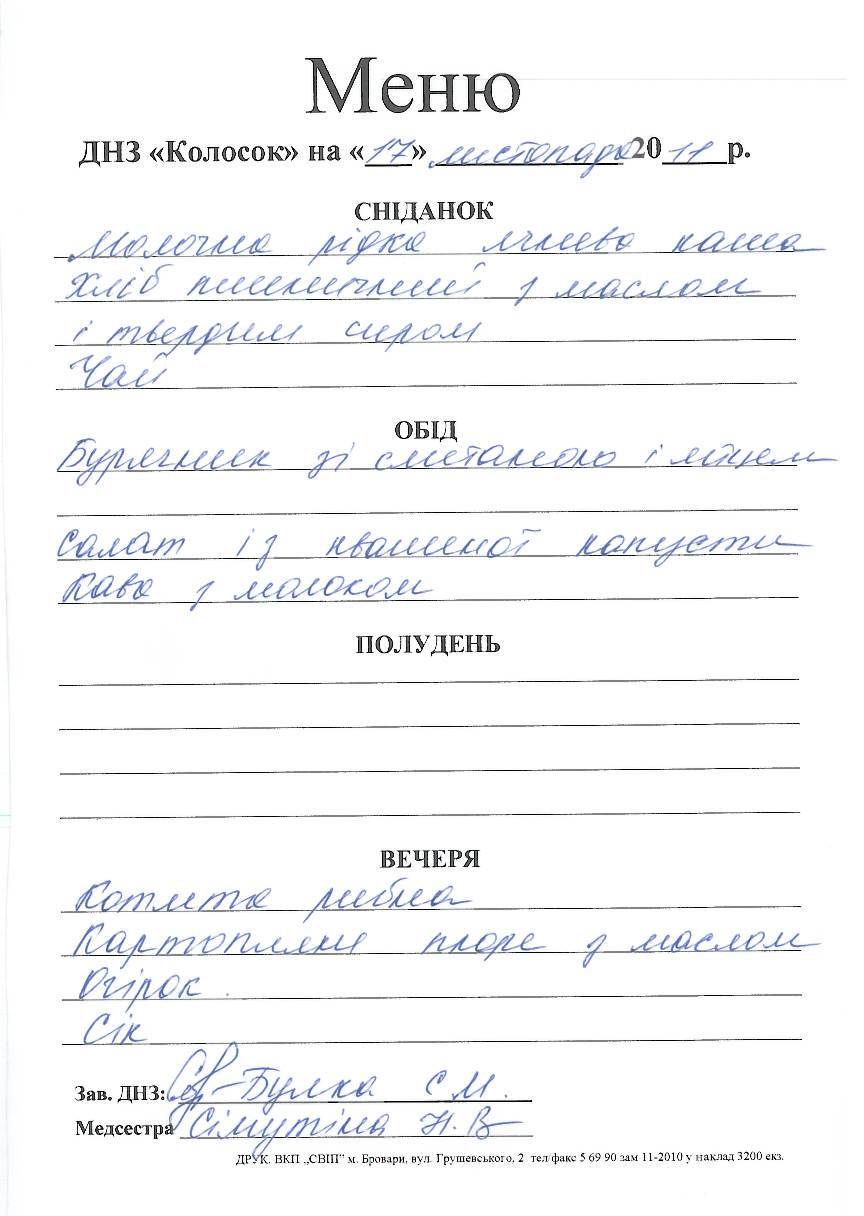 Меню
ДНЗ «Колосок» на «17» листопада 2011 р.
СНІДАНОК
Молочна рідка ячнева каша
Хліб пшеничний з маслом
і твердим сиром
Чай
ОБІД
Бурячник зі сметаною і яйцем
Салат із квашеної капусти
Кава з молоком
ПОЛУДЕНЬ
ВЕЧЕРЯ
Котлета рибна
Картопляне пюре з маслом
Огірок.
Сік
Зав. ДНЗ: Булка С М.
Медсестра Сімутіна Н. В
ДРУК. ВКП „СВІП" м. Бровари, вул. Грушевського, 2 тел/факс 5 69 90 зам 11-2010 у наклад 3200 екз.